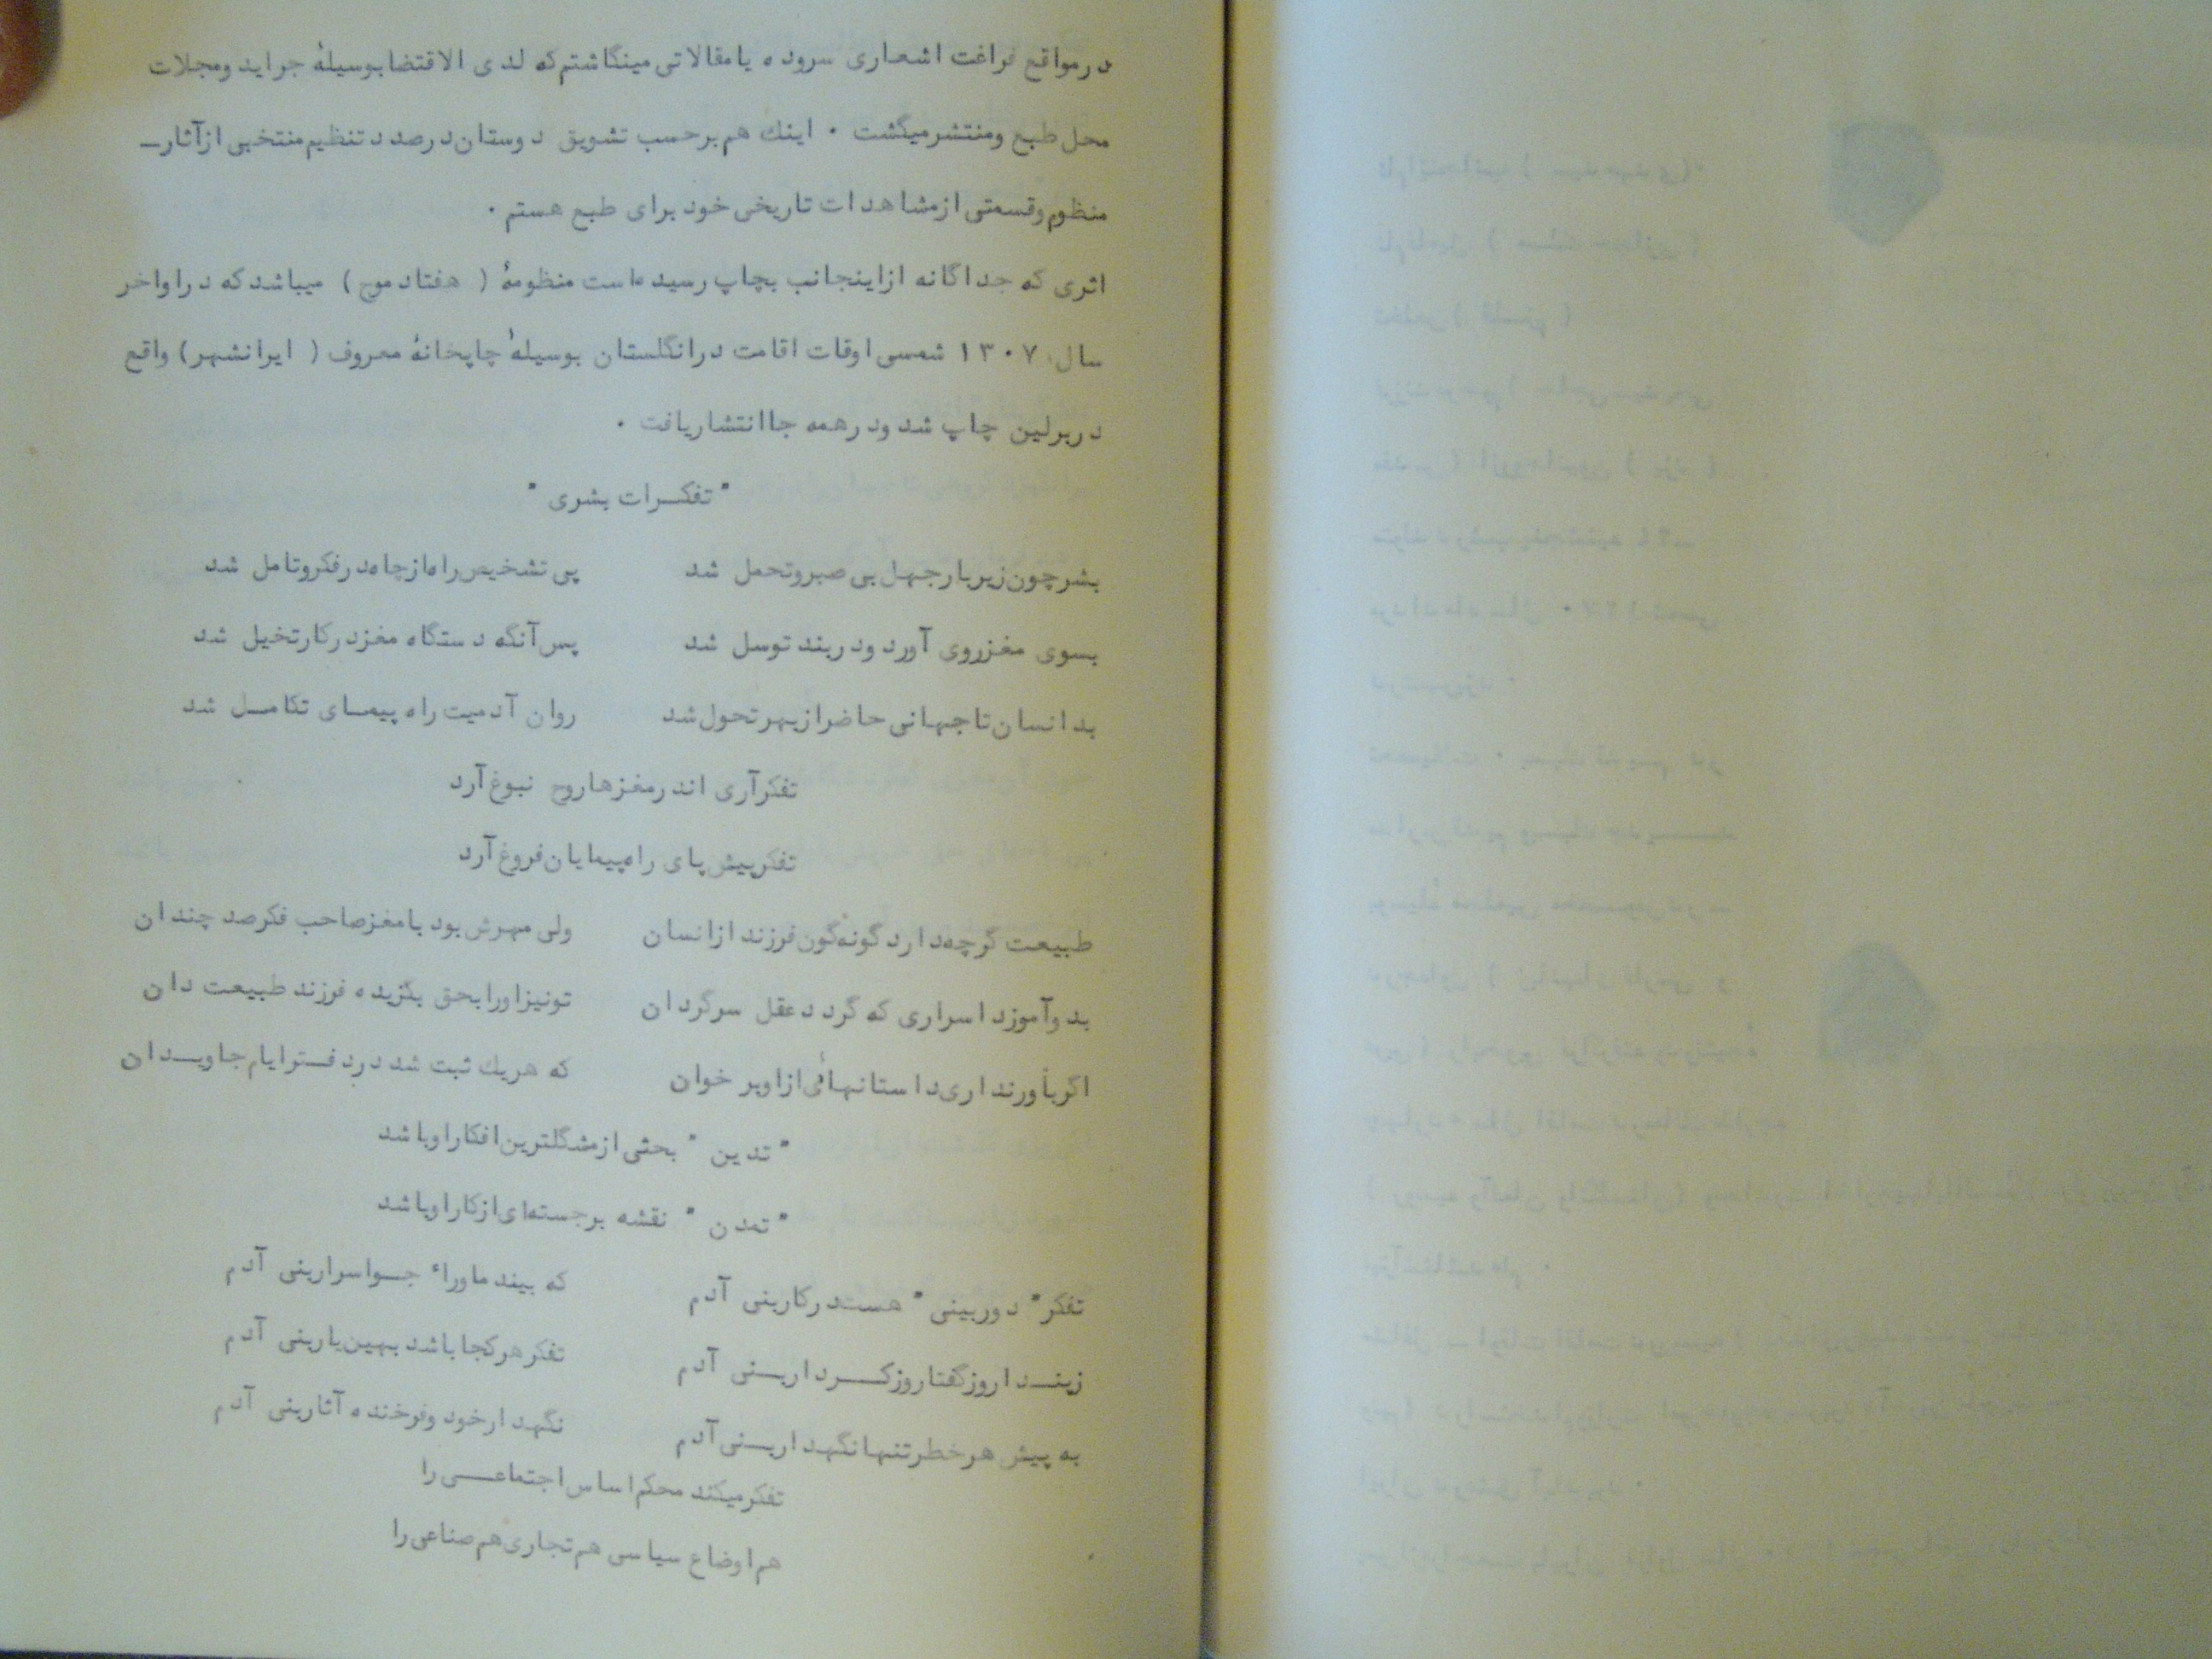 درمواقع فراغت اشعاری سروده یا مقالاتی مینگاشتم که لدی الاقتضا بوسیلهٔ جراید ومجلات
محل طبع ومنتشر میگشت ۰ اینك هم برحسب تشویق دوستان درصدد تنظیم منتخبی ازآثار ــ
منظوم وقسمتی ازمشاهدات تاریخی خود برای طبع هستم ۰
اثری که جداگانه ازاینجانب بچاپ رسیده است منظومهٔ ( هفتاد موج ) میباشد که دراواخر
سال ۱۳۰۷ شمسی اوقات اقامت درانگلستان بوسیلهٔ چاپخانهٔ معروف ( ایرانشهر ) واقع
دربرلین چاپ شد ودرهمه جا انتشار یافت ۰
" تفکـرات بشری "
بشر چون زیر بار جهل بی صبر وتحمل شد پی تشخیص راه ازچاه درفکر وتامل شد
بسوی مغز روی آورد ودر بند توسل شد پس آنگه دستگاه مغز درکار تخیل شد
بد انسان تا جهانی حاضر از بهر تحول شد روان آدمیت راه پیمـای تکامـل شد
تفکر آری اندر مغزها روح نبوغ آرد
تفکر پیش پای راه پیمایان فروغ آرد
طبیعت گرچه دارد گونه گون فرزند از انسان ولی مهرش بود با مغز صاحب فکر صد چندان
بدو آموزد اسراری که گردد عقل سرگردان تو نیز اورا بحق بگزیده فرزند طبیعت دان
اگر بأور نداری داستانهائی از او بر خوان که هریك ثبت شد در دفـتر ایام جاویـدان
" تدین " بحثی از مشگلترین افکار اوباشد
" تمدن " نقشه برجسته‌ای ازکار اوباشد
تفکر " دوربینی " هست درکار بنی آدم که بیند ماوراء جـو اسرار بنی آدم
زپنـدار وزگفتار وزکـردار بـنی آدم تفکر هرکجا باشد بهین یار بنی آدم
به پیش هر خطر تنها نگهدار بـنی آدم نگهدار خود وفرخنده آثار بنی آدم
تفکر میکند محکم اساس اجتماعـی را
هم اوضاع سیاسی هم تجاری هم صناعی را